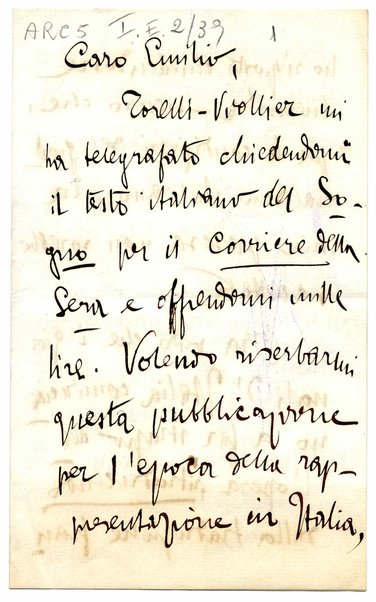 ARC5 I.E.2/39 1
Caro Emilio,
Torelli-Viollier mi
ha telegrafato chiedendomi
il testo italiano del So-
gno per il Corriere della
Sera e offrendomi mille
lire. Volendo riserbarmi
questa pubblicazione
per l'epoca della rap-
presentazione in Italia,